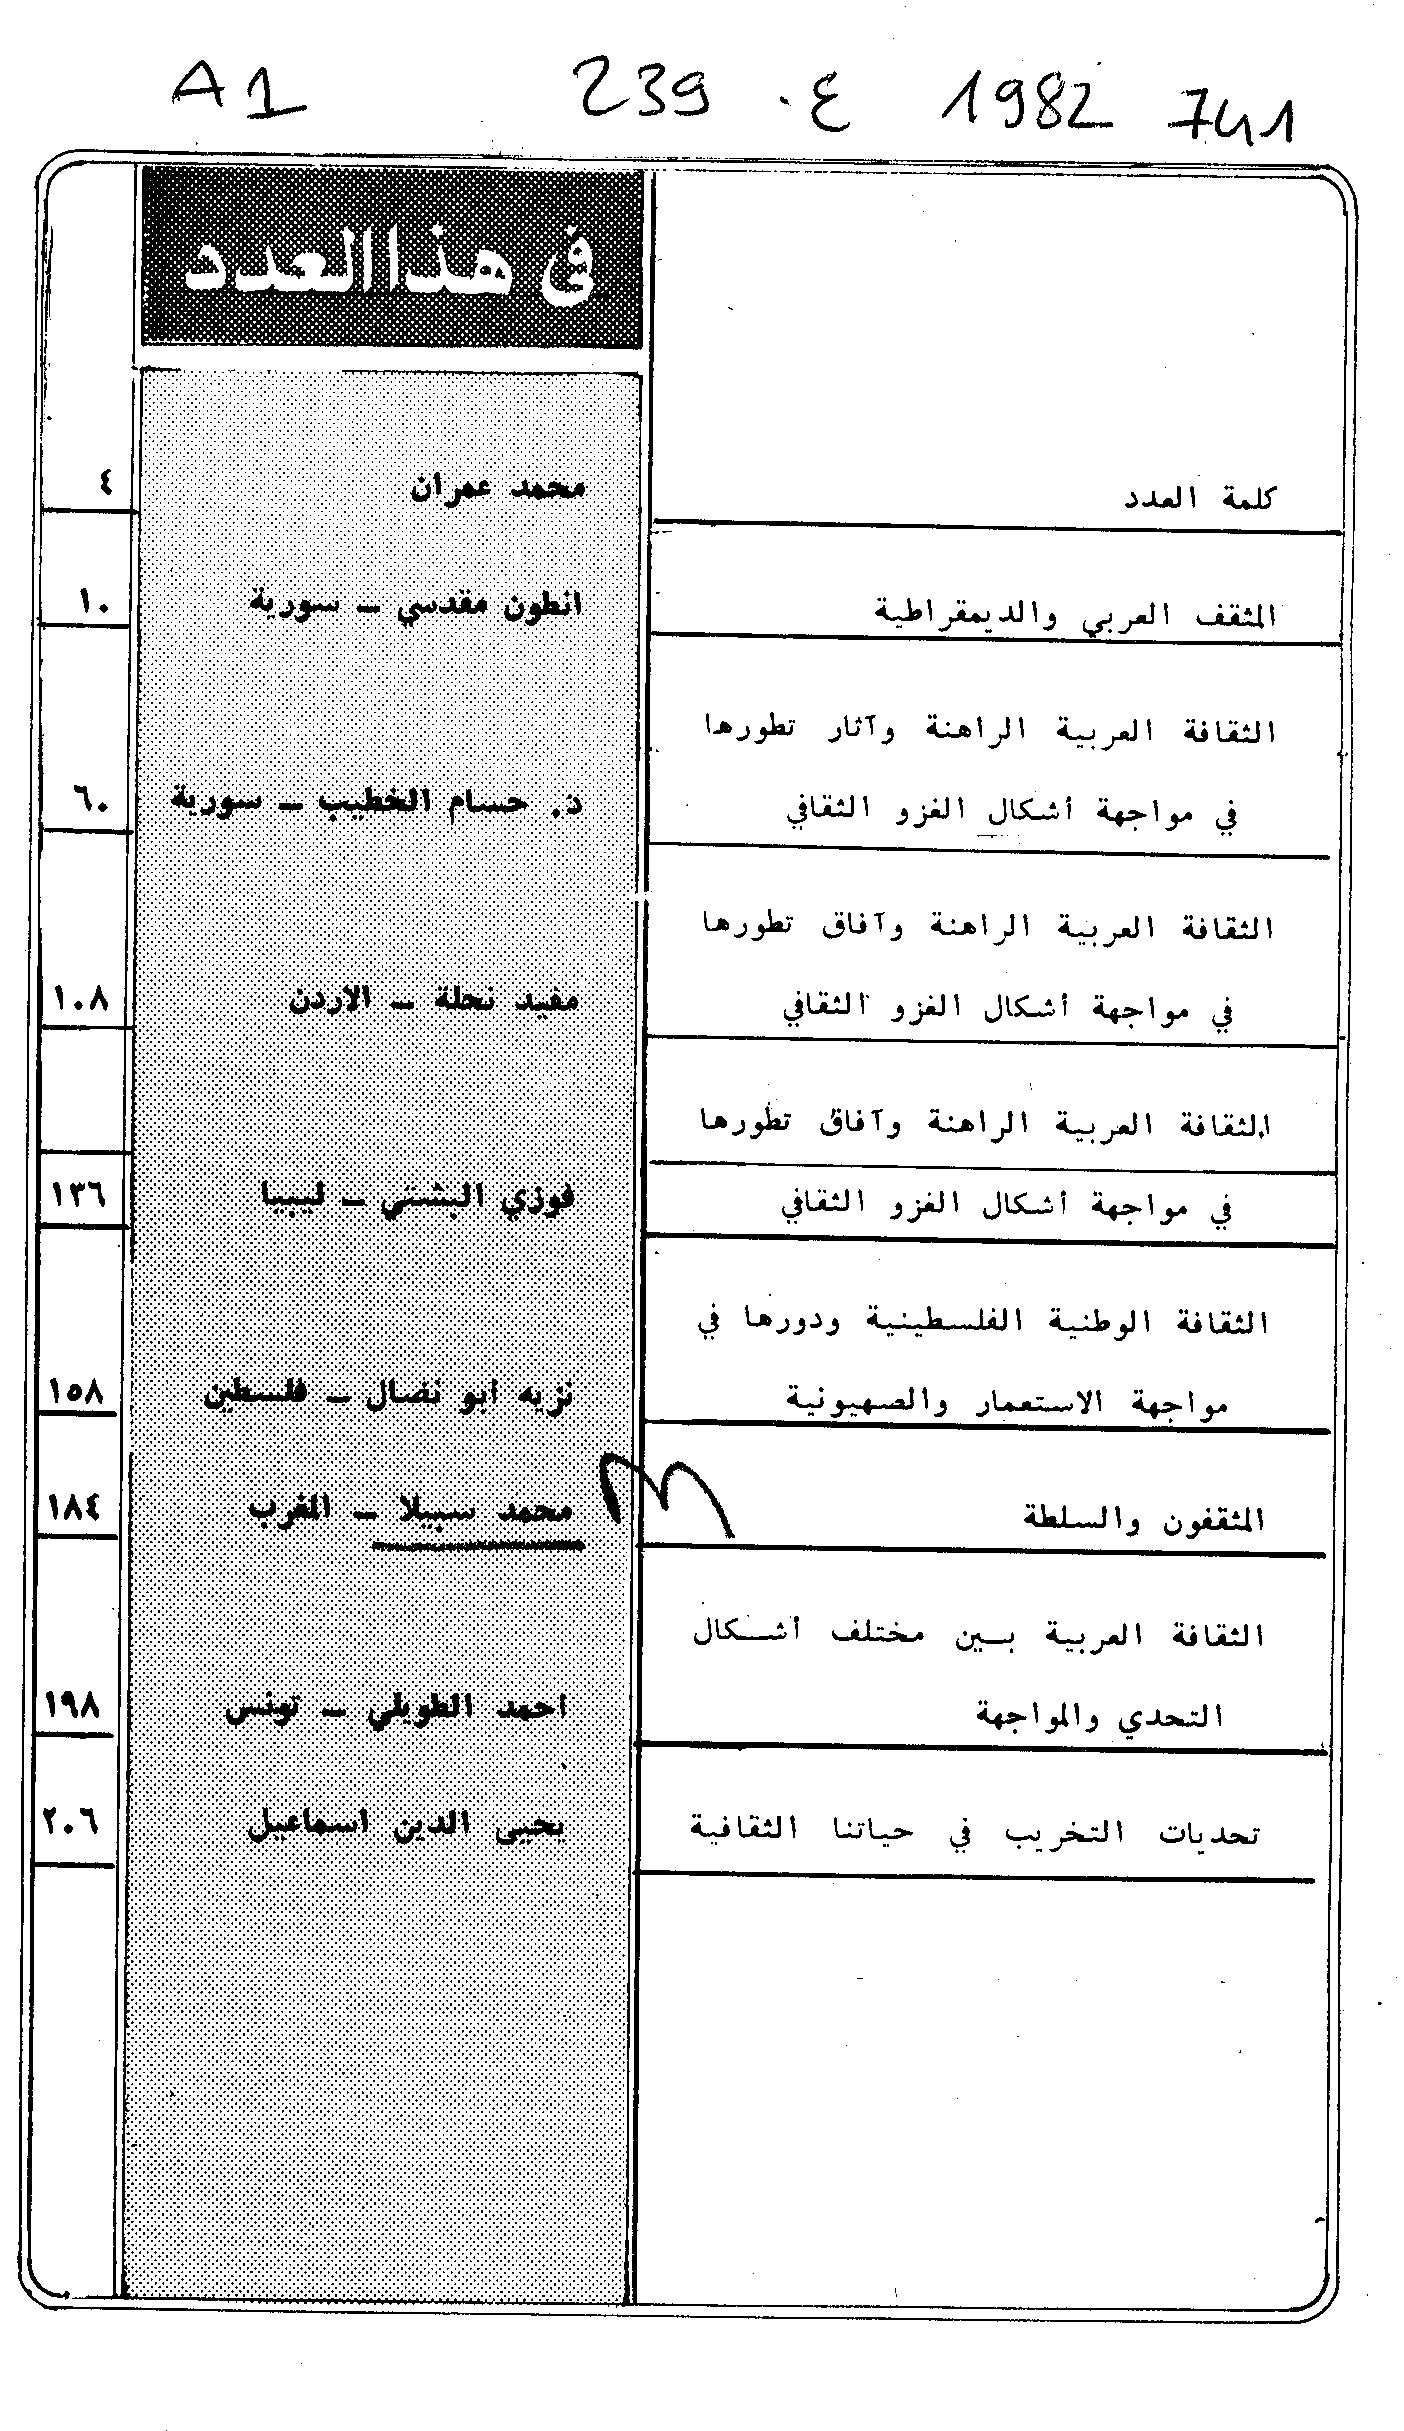 A1 239 ع. 1982 741
في هذا العدد
كلمة العدد محمد عمران ٤
المثقف العربي والديمقراطية انطون مقدسي ــ سورية ١٠
الثقافة العربية الراهنة وآثار تطورها
في مواجهة أشكال الغزو الثقافي د. حسام الخطيب ــ سورية ٦٠
الثقافة العربية الراهنة وآفاق تطورها
في مواجهة أشكال الغزو الثقافي مفيد نحلة ــ الاردن ١٠٨
الثقافة العربية الراهنة وآفاق تطورها
في مواجهة أشكال الغزو الثقافي فوزي البشتي ــ ليبيا ١٣٦
الثقافة الوطنية الفلسطينية ودورها في
مواجهة الاستعمار والصهيونية نزيه ابو نضال ــ فلسطين ١٥٨
المثقفون والسلطة محمد سبيلا ــ المغرب ١٨٤
الثقافة العربية بــين مختلف أشــكال
التحدي والمواجهة احمد الطويلي ــ تونس ١٩٨
تحديات التخريب في حياتنا الثقافية يحيى الدين اسماعيل ٢٠٦